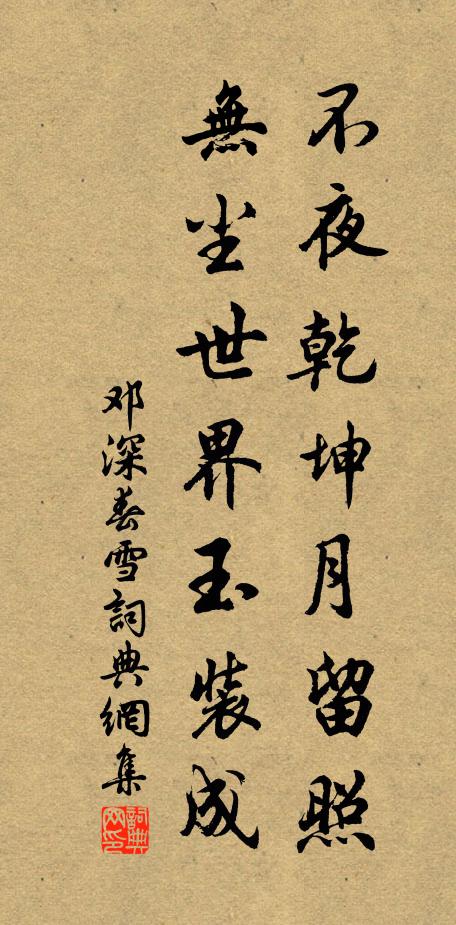 不夜乾坤月留照
無尘世界玉裝成
邓深春雪詞典網集
詞典
网印